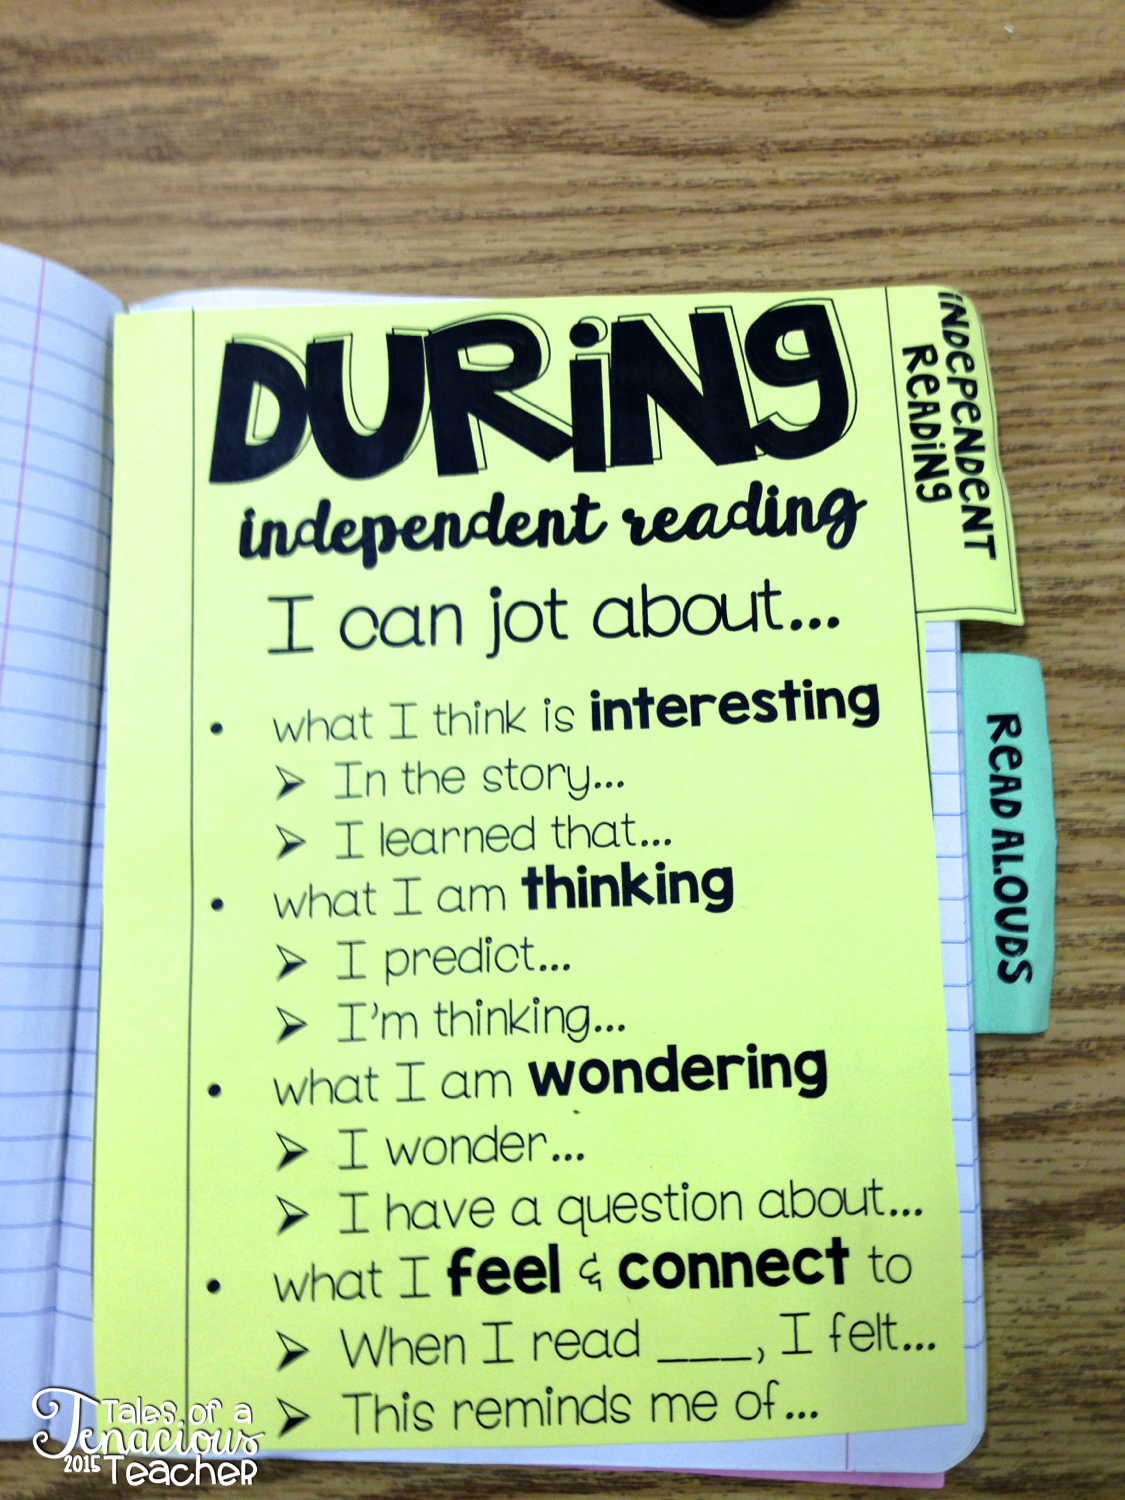 DURING
independent reading
I can jot about...
• what I think is interesting
➢ In the story...
➢ I learned that...
• what I am thinking
➢ I predict...
➢ I'm thinking...
• what I am wondering
➢ I wonder...
➢ I have a question about...
• what I feel & connect to
➢ When I read ___, I felt...
➢ This reminds me of...
INDEPENDENT
READING
READ ALOUDS
Tales of a
Tenacious
2015 Teacher